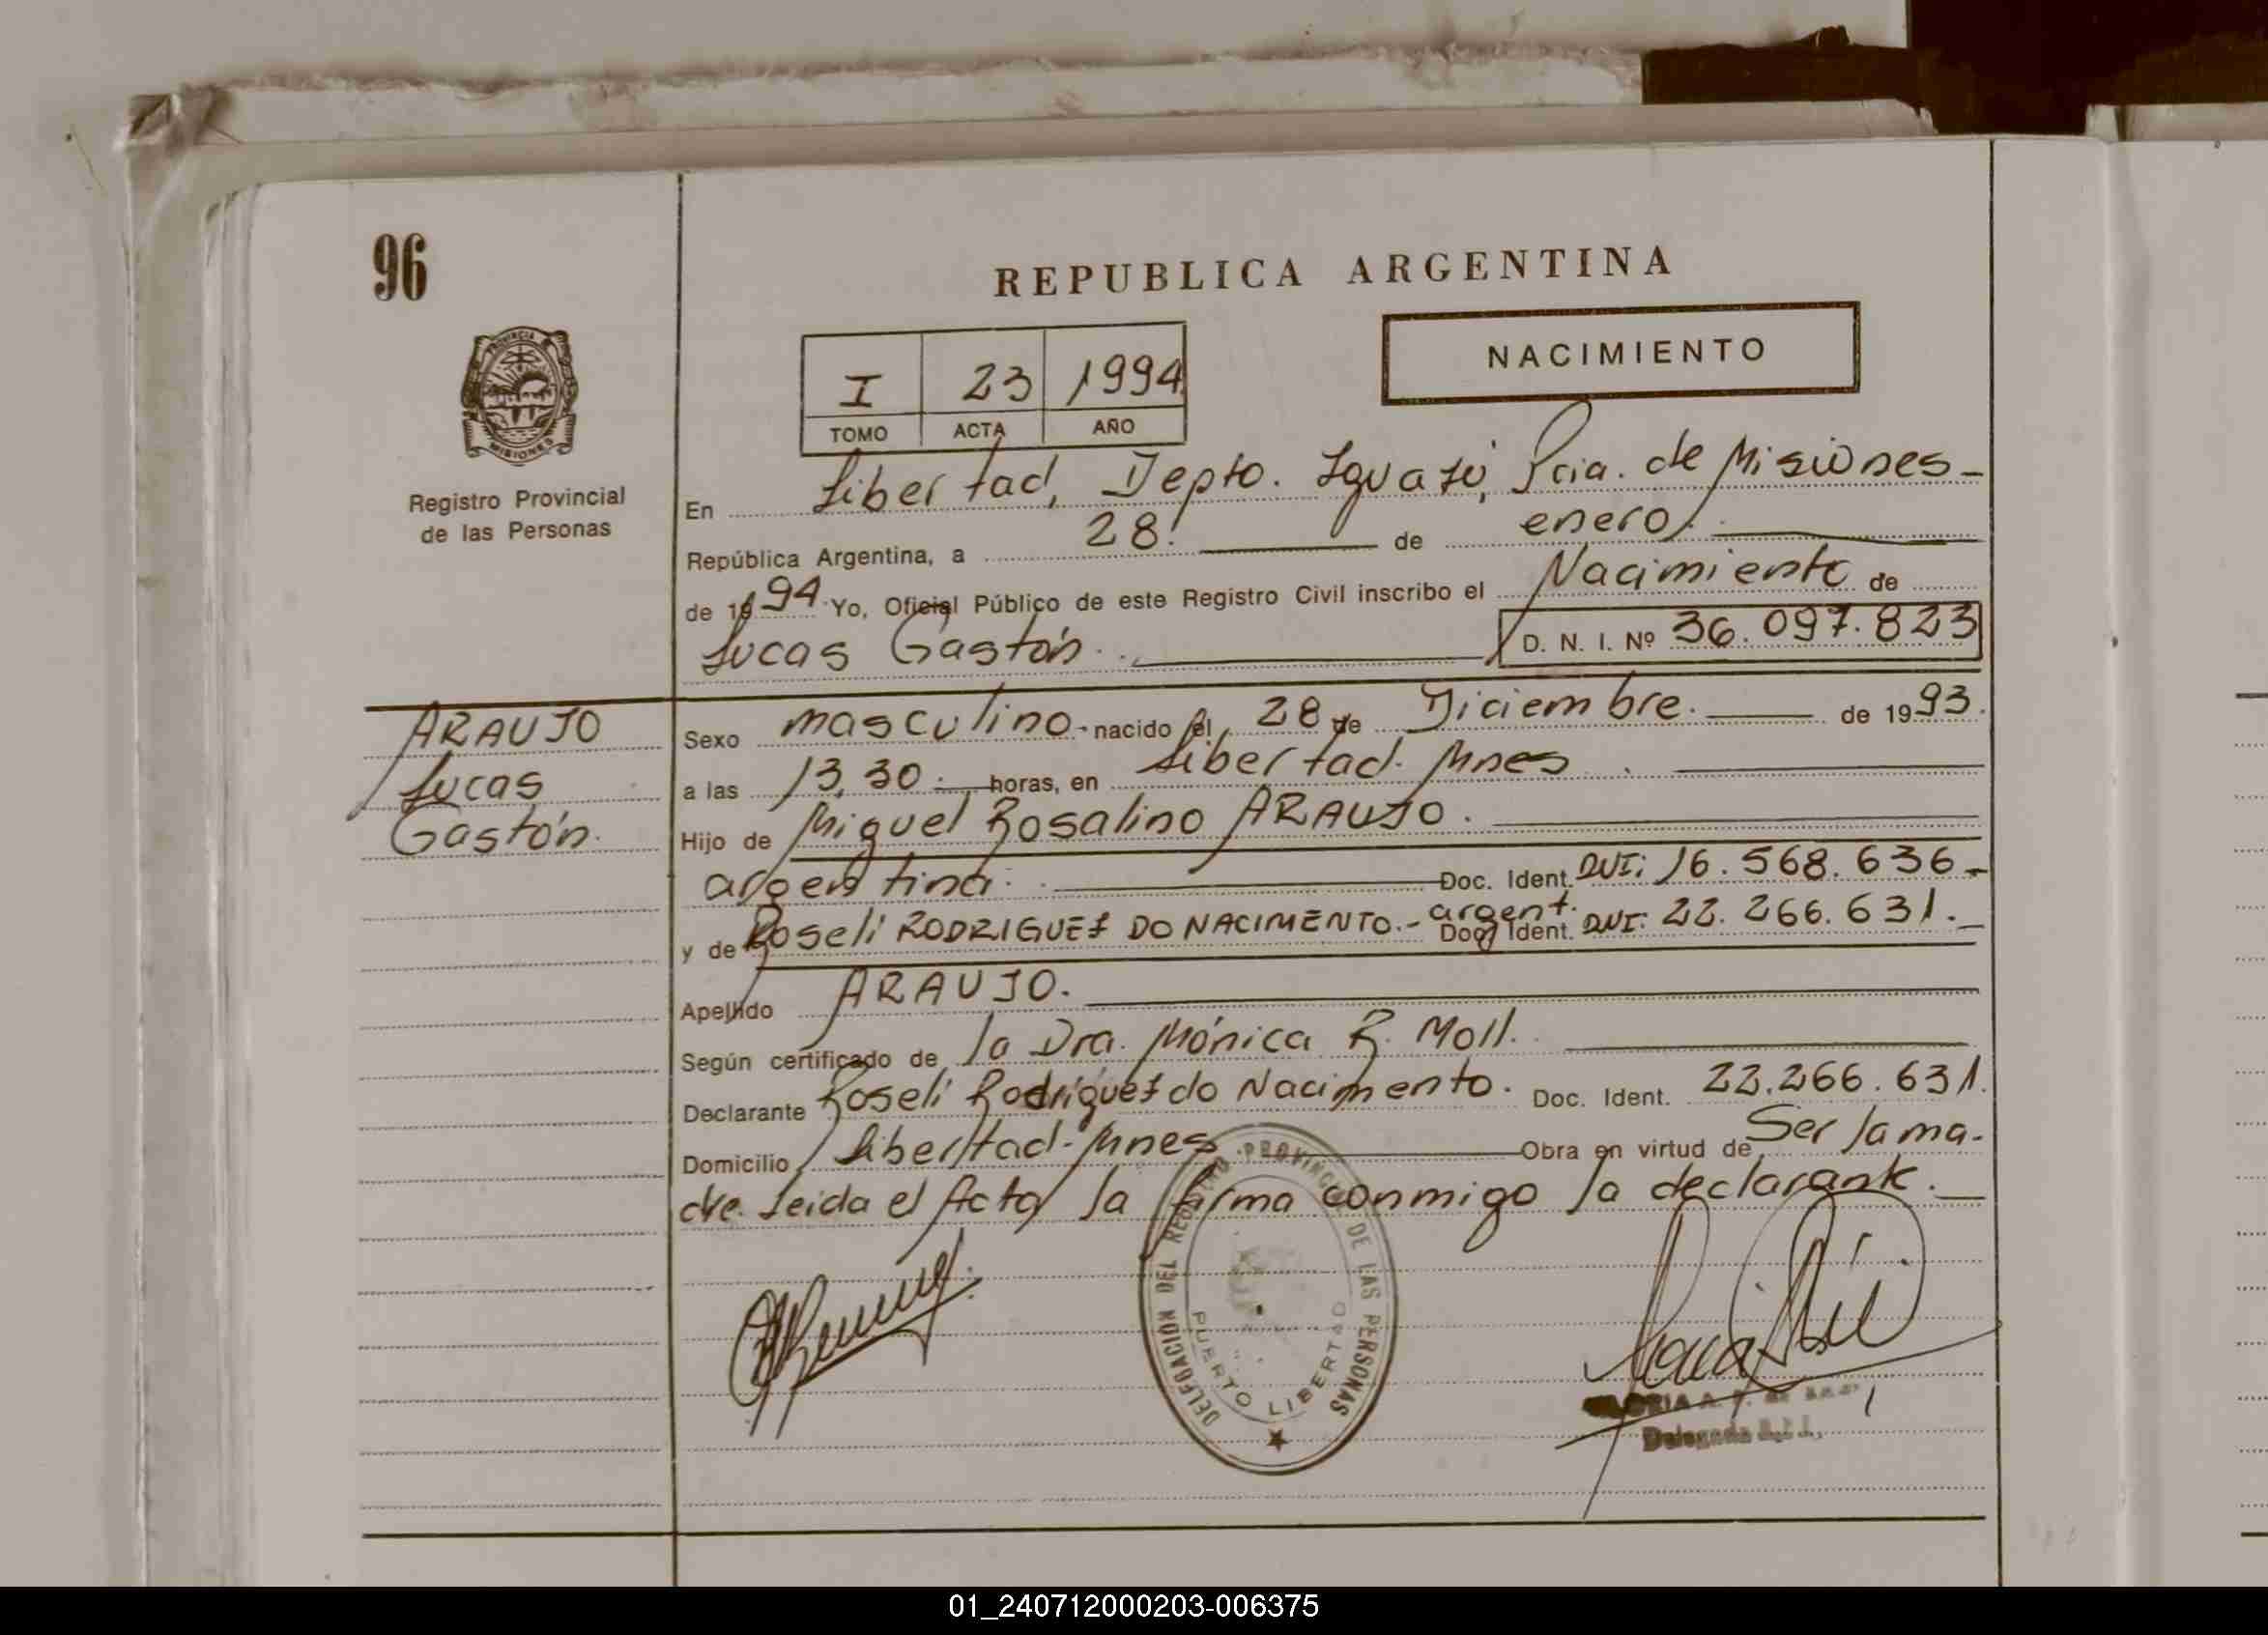 96
REPUBLICA ARGENTINA
NACIMIENTO
I 23 1994
TOMO ACTA AÑO
PROVINCIA
MISIONES
Registro Provincial
de las Personas
En Libertad, Depto. Iguazú, Pcia. de Misiones-
República Argentina, a 28. de enero.
de 1994 Yo, Oficial Público de este Registro Civil inscribo el Nacimiento de
Lucas Gastón. D. N. I. Nº 36.097.823
ARAUJO
Lucas
Gastón.
Sexo masculino. nacido el 28 de Diciembre. de 1993.
a las 13,30. horas, en Libertad. Mnes
Hijo de Miguel Rosalino ARAUJO.
argentina. Doc. Ident. DNI: 16.568.636-
y de Roseli RODRIGUEZ DO NACIMENTO.- argent. Doc. Ident. DNI: 22.266.631.
Apellido ARAUJO.
Según certificado de la Dra. Mónica R. Moll.
Declarante Roseli Rodríguez do Nacimento. Doc. Ident. 22.266.631.
Domicilio Libertad-Mnes Obra en virtud de Ser la ma-
dre. Leida el Acta la firma conmigo la declarante.
DELEGACIÓN DEL REGISTRO PROVINCIAL DE LAS PERSONAS
PUERTO LIBERTAD
GLORIA A.
Delegada
01_240712000203-006375